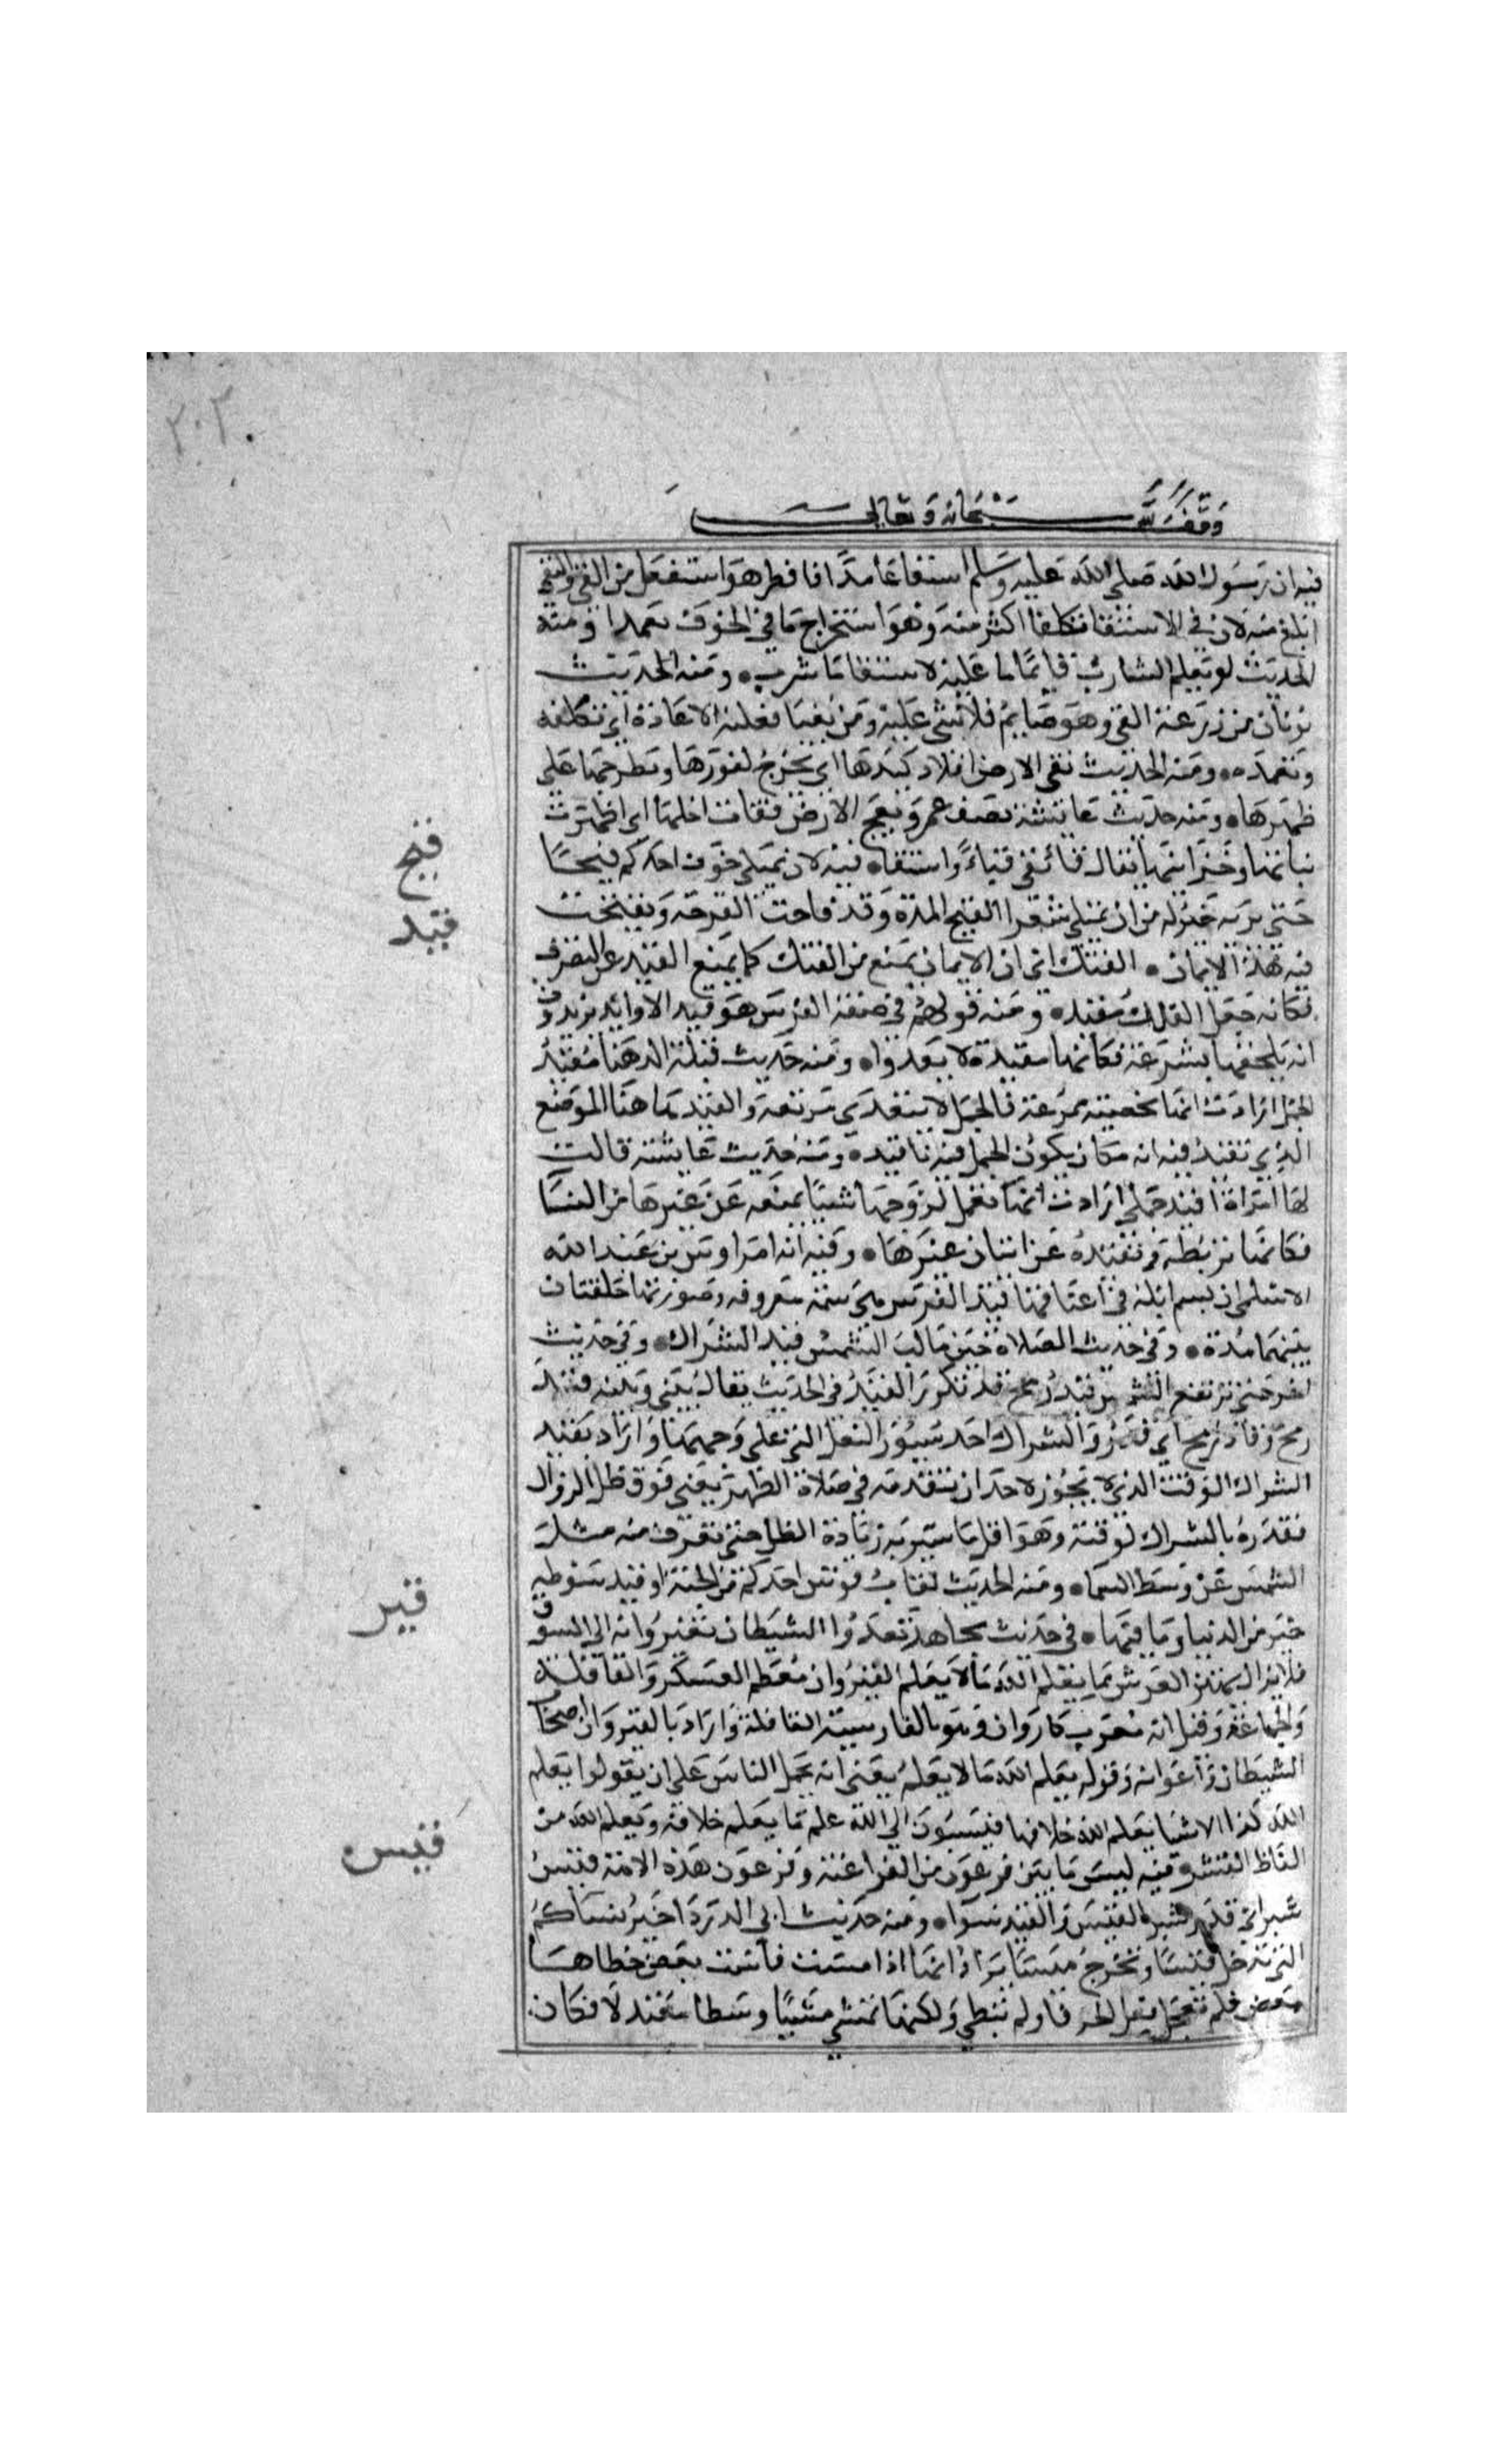 ٢٠٢
وقف لله سبحانه وتعالى
فيه ان رسول الله صلى الله عليه وسلم استقا عامدا فافطر هو استفعل من القى والتقى
ابلغ منه لان في الاستقا تكلفا اكثر منه وهو استخراج ما في الجوف تعمدا ومنه
الحديث لو يعلم الشارب قايما ما عليه لاستقا ما شرب ومنه الحديث
ثوبان من ذرعه القى وهو صايم فلا شى عليه ومن تقيا فعليه الاعادة اى تكلفه
وتعمده ومنه الحديث تقى الارض افلاذ كبدها اى تخرج كنوزها وتطرحها على
ظهرها ومنه حديث عايشة تصف عمر وبعج الارض فقاات اكلها اى اظهرت
نباتها وخزاينها يقال قا يقى قياء واستقاء فيه لان يمتلى جوف احدكم قيحا
حتى يريه خير له من ان يمتلى شعرا القيح المدة وقد قاحت القرحة وتقيحت
فيه قيد الايمان الفتك اى ان الايمان يمنع من الفتك كما يمنع القيد عن التصرف
فكانه جعل الفتك مقيدا ومنه قولهم في صفة الفرس هو قيد الاوابد يريدون
انه يلحقها بسرعة فكانها مقيدة لا تعدوا ومنه حديث قيلة الدهنا مقيد
الجمل ارادت انها مخصبة ممرعة فالجمل لا يتعدى مرتعه والمقيد هاهنا الموضع
الذى تقيد فيه انه مكان يكون الجمل فيه ذا قيد ومنه حديث عايشة قالت
لها امراة ااقيد جملى ارادت انها تعمل لزوجها شيا يمنعه عن غيرها من النسا
فكانها تربطه وتقيده عن اتيان غيرها وفيه انه امر اوس بن عبد الله
الاسلمى ان يسم ابله في اعناقها قيد الفرس هى سمة معروفه وصورتها حلقتان
بينهما مدة وفي حديث الصلاة حين مالت الشمس قيد الشراك وفي حديث
اخر حتى ترتفع الشمس قيد رمح قد تكرر القيد في الحديث يقال بينى وبينه قيد
رمح وقاد رمح اى قدر والشراك احد سيور النعل التى على وجهها واراد بقيد
الشراك الوقت الذى لا يجوز لاحد ان يتقدمه في صلاة الظهر يعنى فوق ظل الزوال
فقدره بالشراك لوقته وهو اقل ما يتبين به زيادة الظل حتى يعرف منه ميل
الشمس عن وسط السماء ومنه الحديث لقاب قوس احدكم من الجنة او قيد سوطه
خير من الدنيا وما فيها في حديث مجاهد تعدوا الشيطان بقيروانه الى السوق
فلا يزال يهتز العرش مما يعلم الله ما لا يعلم القيروان معظم العسكر والقافلة
والجماعة وقيل انه معرب كاروان وهو بالفارسية القافلة واراد بالقيروان اصحا
الشيطان واعوانه وقوله يعلم الله ما لا يعلم يعنى انه يحمل الناس على ان يقولوا يعلم
الله كذا الاشيا يعلم الله خلافها فينسبون الى الله علم ما يعلم خلافه ويعلم الله من
الفاظ القسم فيه ليس ما بين فرعون من الفراعنة وفرعون هذه الامة قيس
شبر اى قدر شبر القيس والقيد سواء ومنه حديث ابى الدردا خير نساكم
التى تدخل قيسا وتخرج ميسا يراد انها اذا مشت قاست بعض خطاها
ببعض فلم تعجل فعل الخرقا ولم تبطى ولكنها تمشى مشيا وسطا معتدلا فكان
قيح
قيد
قير
قيس